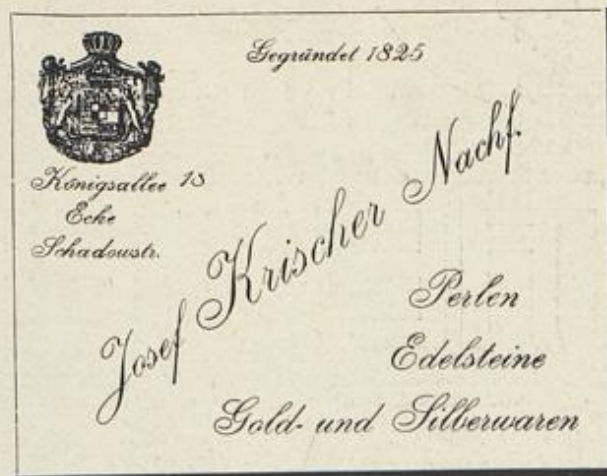 Gegründet 1825
Königsallee 13
Ecke
Schadowstr.
Josef Krischer Nachf.
Perlen
Edelsteine
Gold- und Silberwaren